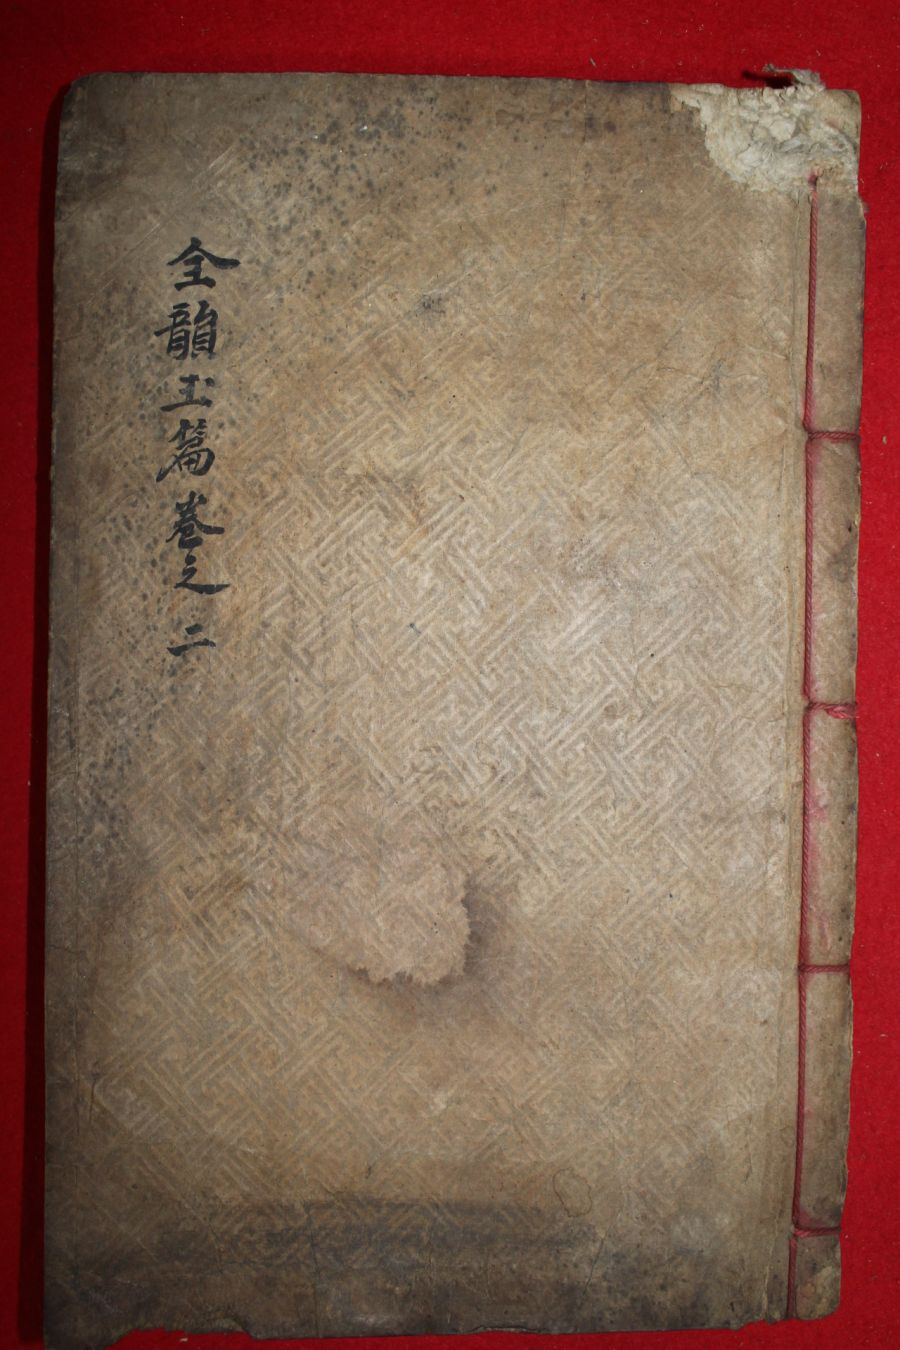 全韻玉篇卷之二